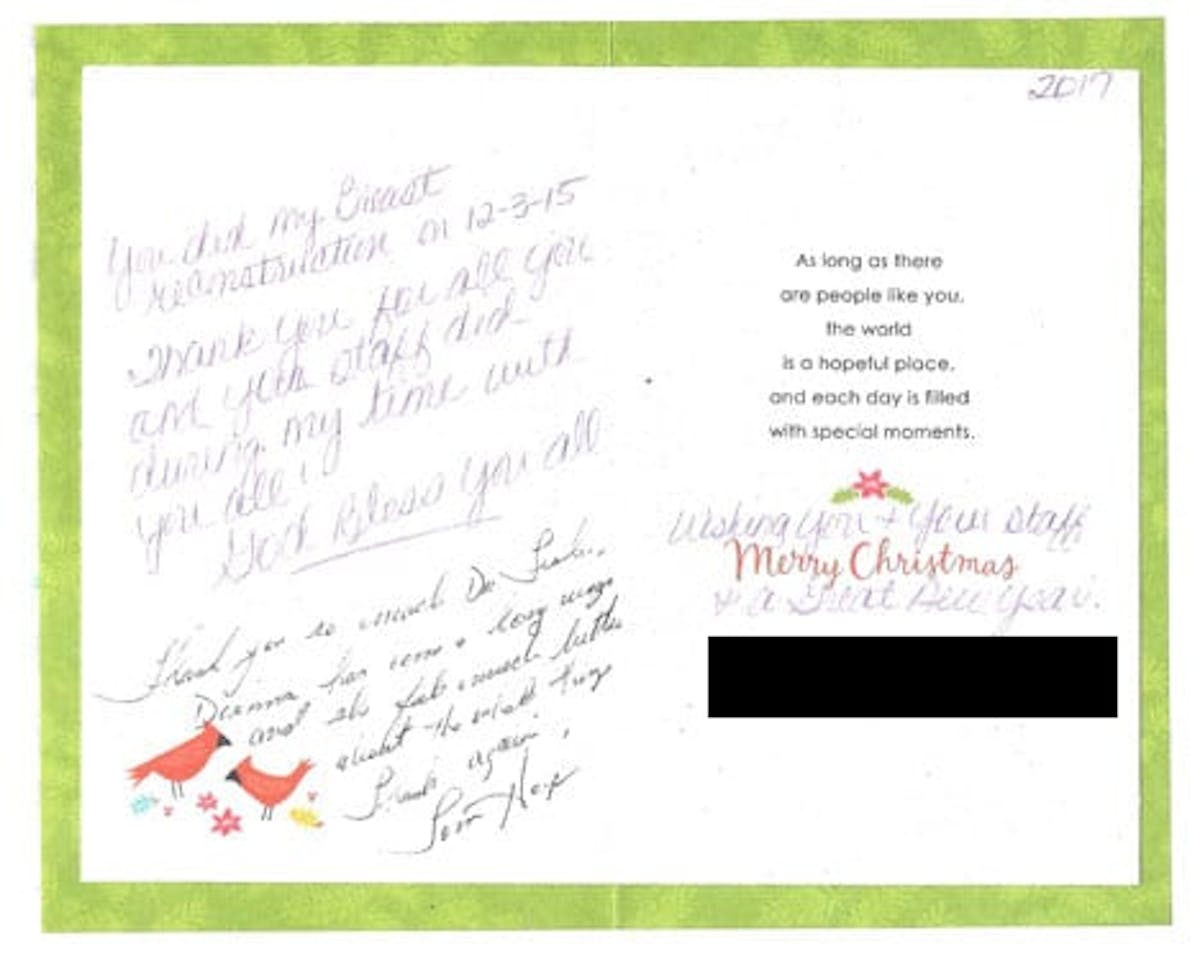 You did my Breast
reconstruction on 12-3-15
Thank you for all you
and your staff did
during my time with
you all!
God Bless You all
Thank you so much Dr
Deanna has come a long ways
and she feels much better
about the
Thank again,
2017
As long as there
are people like you,
the world
is a hopeful place,
and each day is filled
with special moments.
Wishing you + your staff
Merry Christmas
+ a Great New Year.